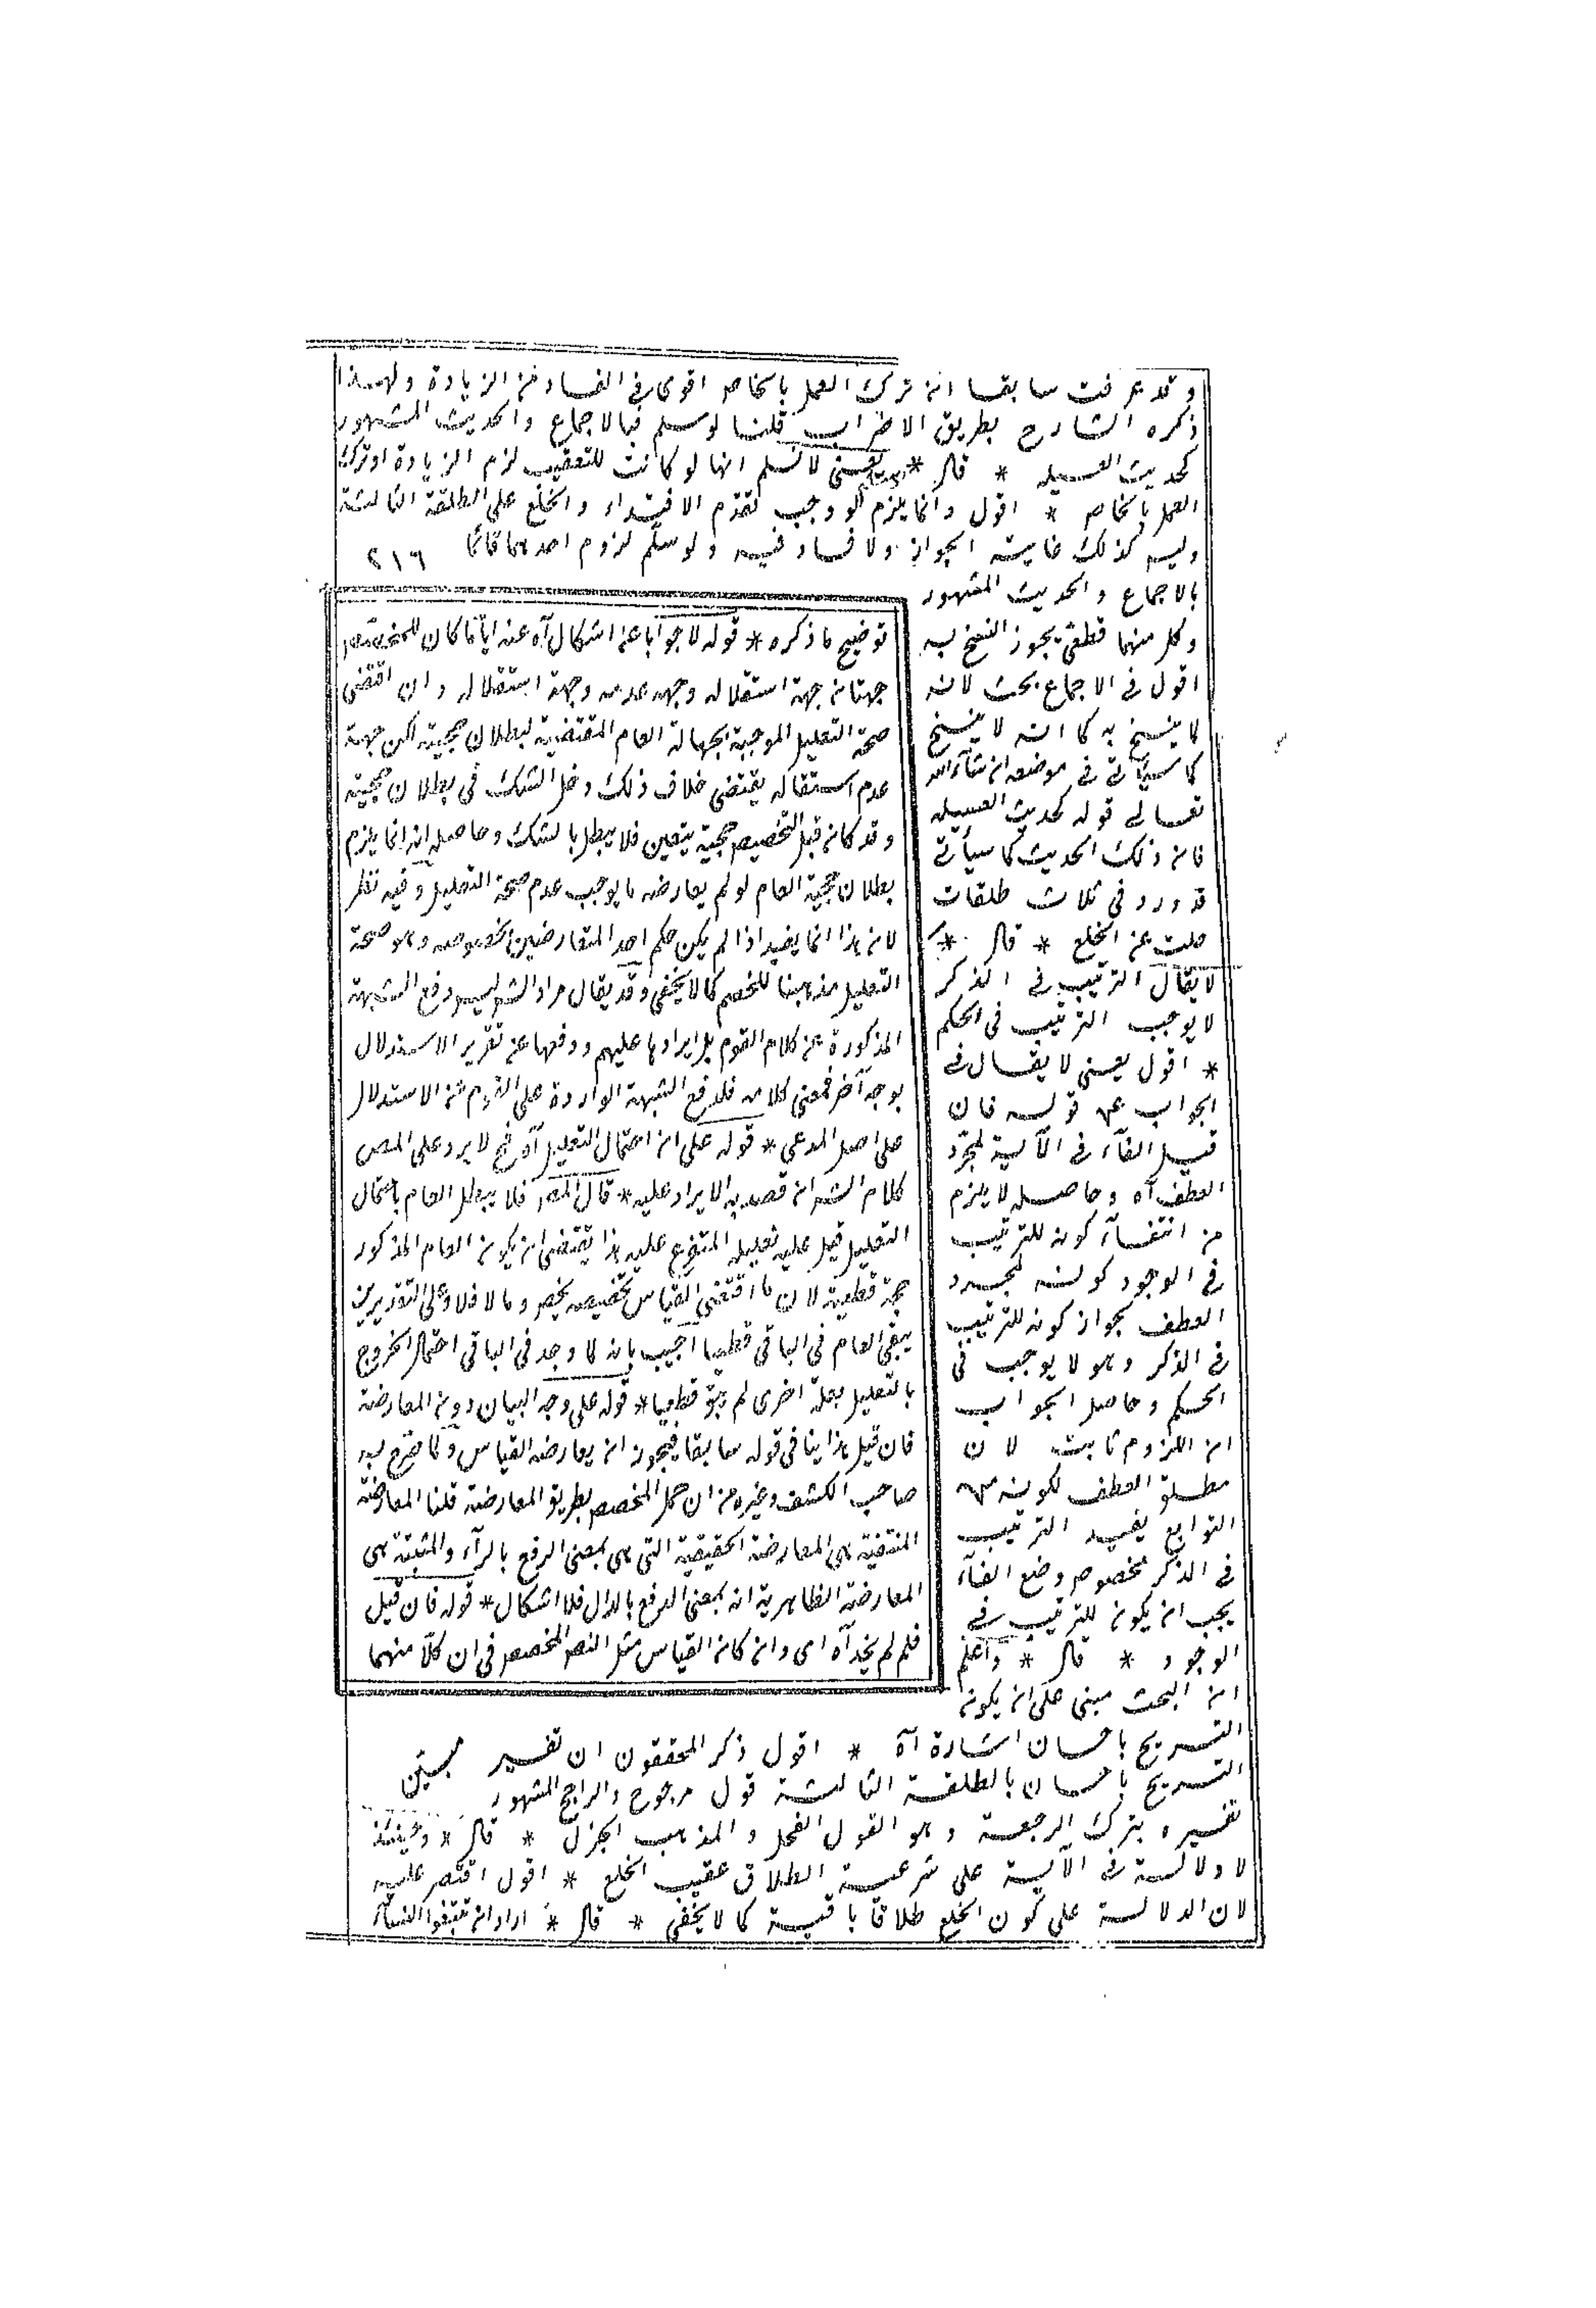 وقد عرفت سابقا ان ترك العمل بالخاص اقوى فى الفساد من الزيادة ولهذا
ذكره الشارح بطريق الاضراب قلنا لو سلم فبالاجماع والحديث المشهور
كحديث العسيلة * قال * يعنى لا نسلم انها لو كانت للتعقيب لزم الزيادة او ترك
العمل بالخاص * اقول وانما يلزم لو وجب تقدم الافتداء والخلع على الطلقة الثالثة
وليس كذلك غايته الجواز ولا فساد فيه ولو سلم لزوم احدهما قائما
٢١٦
بالاجماع والحديث المشهور
وكل منهما قطعى يجوز النسخ به
اقول فى الاجماع بحث لانه
لا ينسخ به كما انه لا ينسخ
كما سيأتى فى موضعه ان شاء الله
تعالى قوله كحديث العسيلة
فان ذلك الحديث كما سيأتى
قد ورد فى ثلاث طلقات
خلت عن الخلع * قال *
لا يقال الترتيب فى الذكر
لا يوجب الترتيب فى الحكم
* اقول يعنى لا يقال فى
الجواب عن قوله فان
قيل الفآء فى الآية لمجرد
العطف آه وحاصله لا يلزم
من انتفآء كونه للترتيب
فى الوجود كونه لمجرد
العطف بجواز كونه للترتيب
فى الذكر وهو لا يوجب فى
الحكم وحاصل الجواب
ان اللزوم ثابت لان
مطلق العطف لكونه من
التوابع يفيد الترتيب
فى الذكر فخصوص وضع الفآء
يجب ان يكون للترتيب فى
الوجود * قال * واعلم
ان البحث مبنى على ان يكون
التسريح باحسان اشارة آه * اقول ذكر المحققون ان تفسير
التسريح باحسان بالطلقة الثالثة قول مرجوح والراجح المشهور
تفسيره بترك الرجعة وهو القول الفحل والمذهب الجزل * قال * وحينئذ
لا دلالة فى الآية على شرعية الطلاق عقيب الخلع * اقول اقتصر عليه
لان الدلالة على كون الخلع طلاقا باقية كما لا يخفى * قال * اراد ان تبتغوا النسآء
توضيح ما ذكره * قوله لا جوابا عن اشكال آه عنه اياما كان للمخصص
جهتان جهة استقلاله وجهة عدمه وجهة استقلاله وان اقتضى
صحة التعليل الموجبة لجهالة العام المقتضية لبطلان حجيته لكن جهة
عدم استقلاله يقتضى خلاف ذلك دخل الشك فى بطلان حجيته
وقد كان قبل التخصيص حجية بيقين فلا يبطل بالشك وحاصله انه انما يلزم
بطلان حجية العام لو لم يعارضه ما يوجب عدم صحة التعليل وفيه نظر
لان هذا انما يفيد اذا لم يكن حكم احد المتعارضين بخصوصه وهو صحة
التعليل مذهبنا للخصم كما لا يخفى وقد يقال مراد الشه ليس دفع الشبهة
المذكورة عن كلام القوم بل ايرادها عليهم ودفعها عن تقرير الاستدلال
بوجه آخر فمعنى كلامه فلدفع الشبهة الواردة على القوم من الاستدلال
على اصل المدعى * قوله على ان احتمال التعليل آه فح لا يرد على المص
كلام الشه ان قصد به الايراد عليه * قال المص فلا يبطل العام باحتمال
التعليل قيل عليه تعليله المتفرع عليه هذا يقتضى ان يكون العام المذكور
حجة قطعية لان ما اقتضى القياس تخصيصه يخص وما لا فلا وعلى التقديرين
يبقى العام فى الباقى قطعيا اجيب بانه لما وجد فى الباقى احتمال الخروج
بالتعليل بعلة اخرى لم يبق قطعيا * قوله على وجه البيان دون المعارضة
فان قيل هذا ينافى قوله سابقا فيجوز ان يعارضه القياس ولما صرح به
صاحب الكشف وغيره من ان عمل المخصص بطريق المعارضة قلنا المعارضة
المنتفية هى المعارضة الحقيقية التى هى بمعنى الرفع بالرآء والمثبتة هى
المعارضة الظاهرية انه بمعنى الدفع بالدال فلا اشكال * قوله فان قيل
فلم لم يخد آه اى وان كان القياس مثل النص المخصص فى ان كلا منهما
مبين